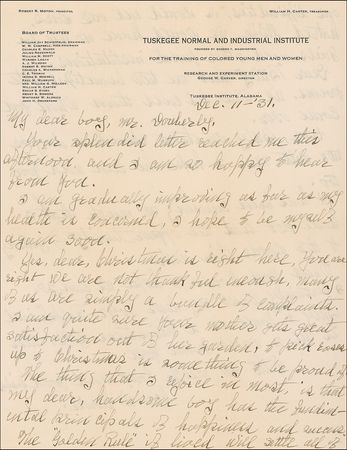 ROBERT R. MOTON, PRINCIPAL
WILLIAM H. CARTER, TREASURER
BOARD OF TRUSTEES
TUSKEGEE NORMAL AND INDUSTRIAL INSTITUTE
FOUNDED BY BOOKER T. WASHINGTON
FOR THE TRAINING OF COLORED YOUNG MEN AND WOMEN
RESEARCH AND EXPERIMENT STATION
GEORGE W. CARVER, DIRECTOR
TUSKEGEE INSTITUTE, ALABAMA
WILLIAM JAY SCHIEFFELIN, CHAIRMAN
W. W. CAMPBELL, VICE-CHAIRMAN
CHARLES E. MASON
JULIUS ROSENWALD
WILLIAM M. SCOTT
WARREN LOGAN
A. J. WILBORN
ROBERT R. MOTON
CHARLES A. WICKERSHAM
C. E. THOMAS
Dec. 11-'31.
My dear boy, Mr.
Your splendid letter reached me this
afternoon, and I am so happy to hear
from you.
I am gradually improving as far as my
health is concerned, I hope to be myself
again soon.
Yes, dear, Christmas is right here, you are
right we are not thankful enough, many
of us are simply a bundle of complaints.
I am quite sure your mother gets great
satisfaction out of her garden, to pick roses
up to Christmas is something to be proud of.
The thing that I rejoice in most, is that
my dear, handsome boy has the fundam-
ental principals of happiness and success.
The "Golden Rule" if lived will settle all of